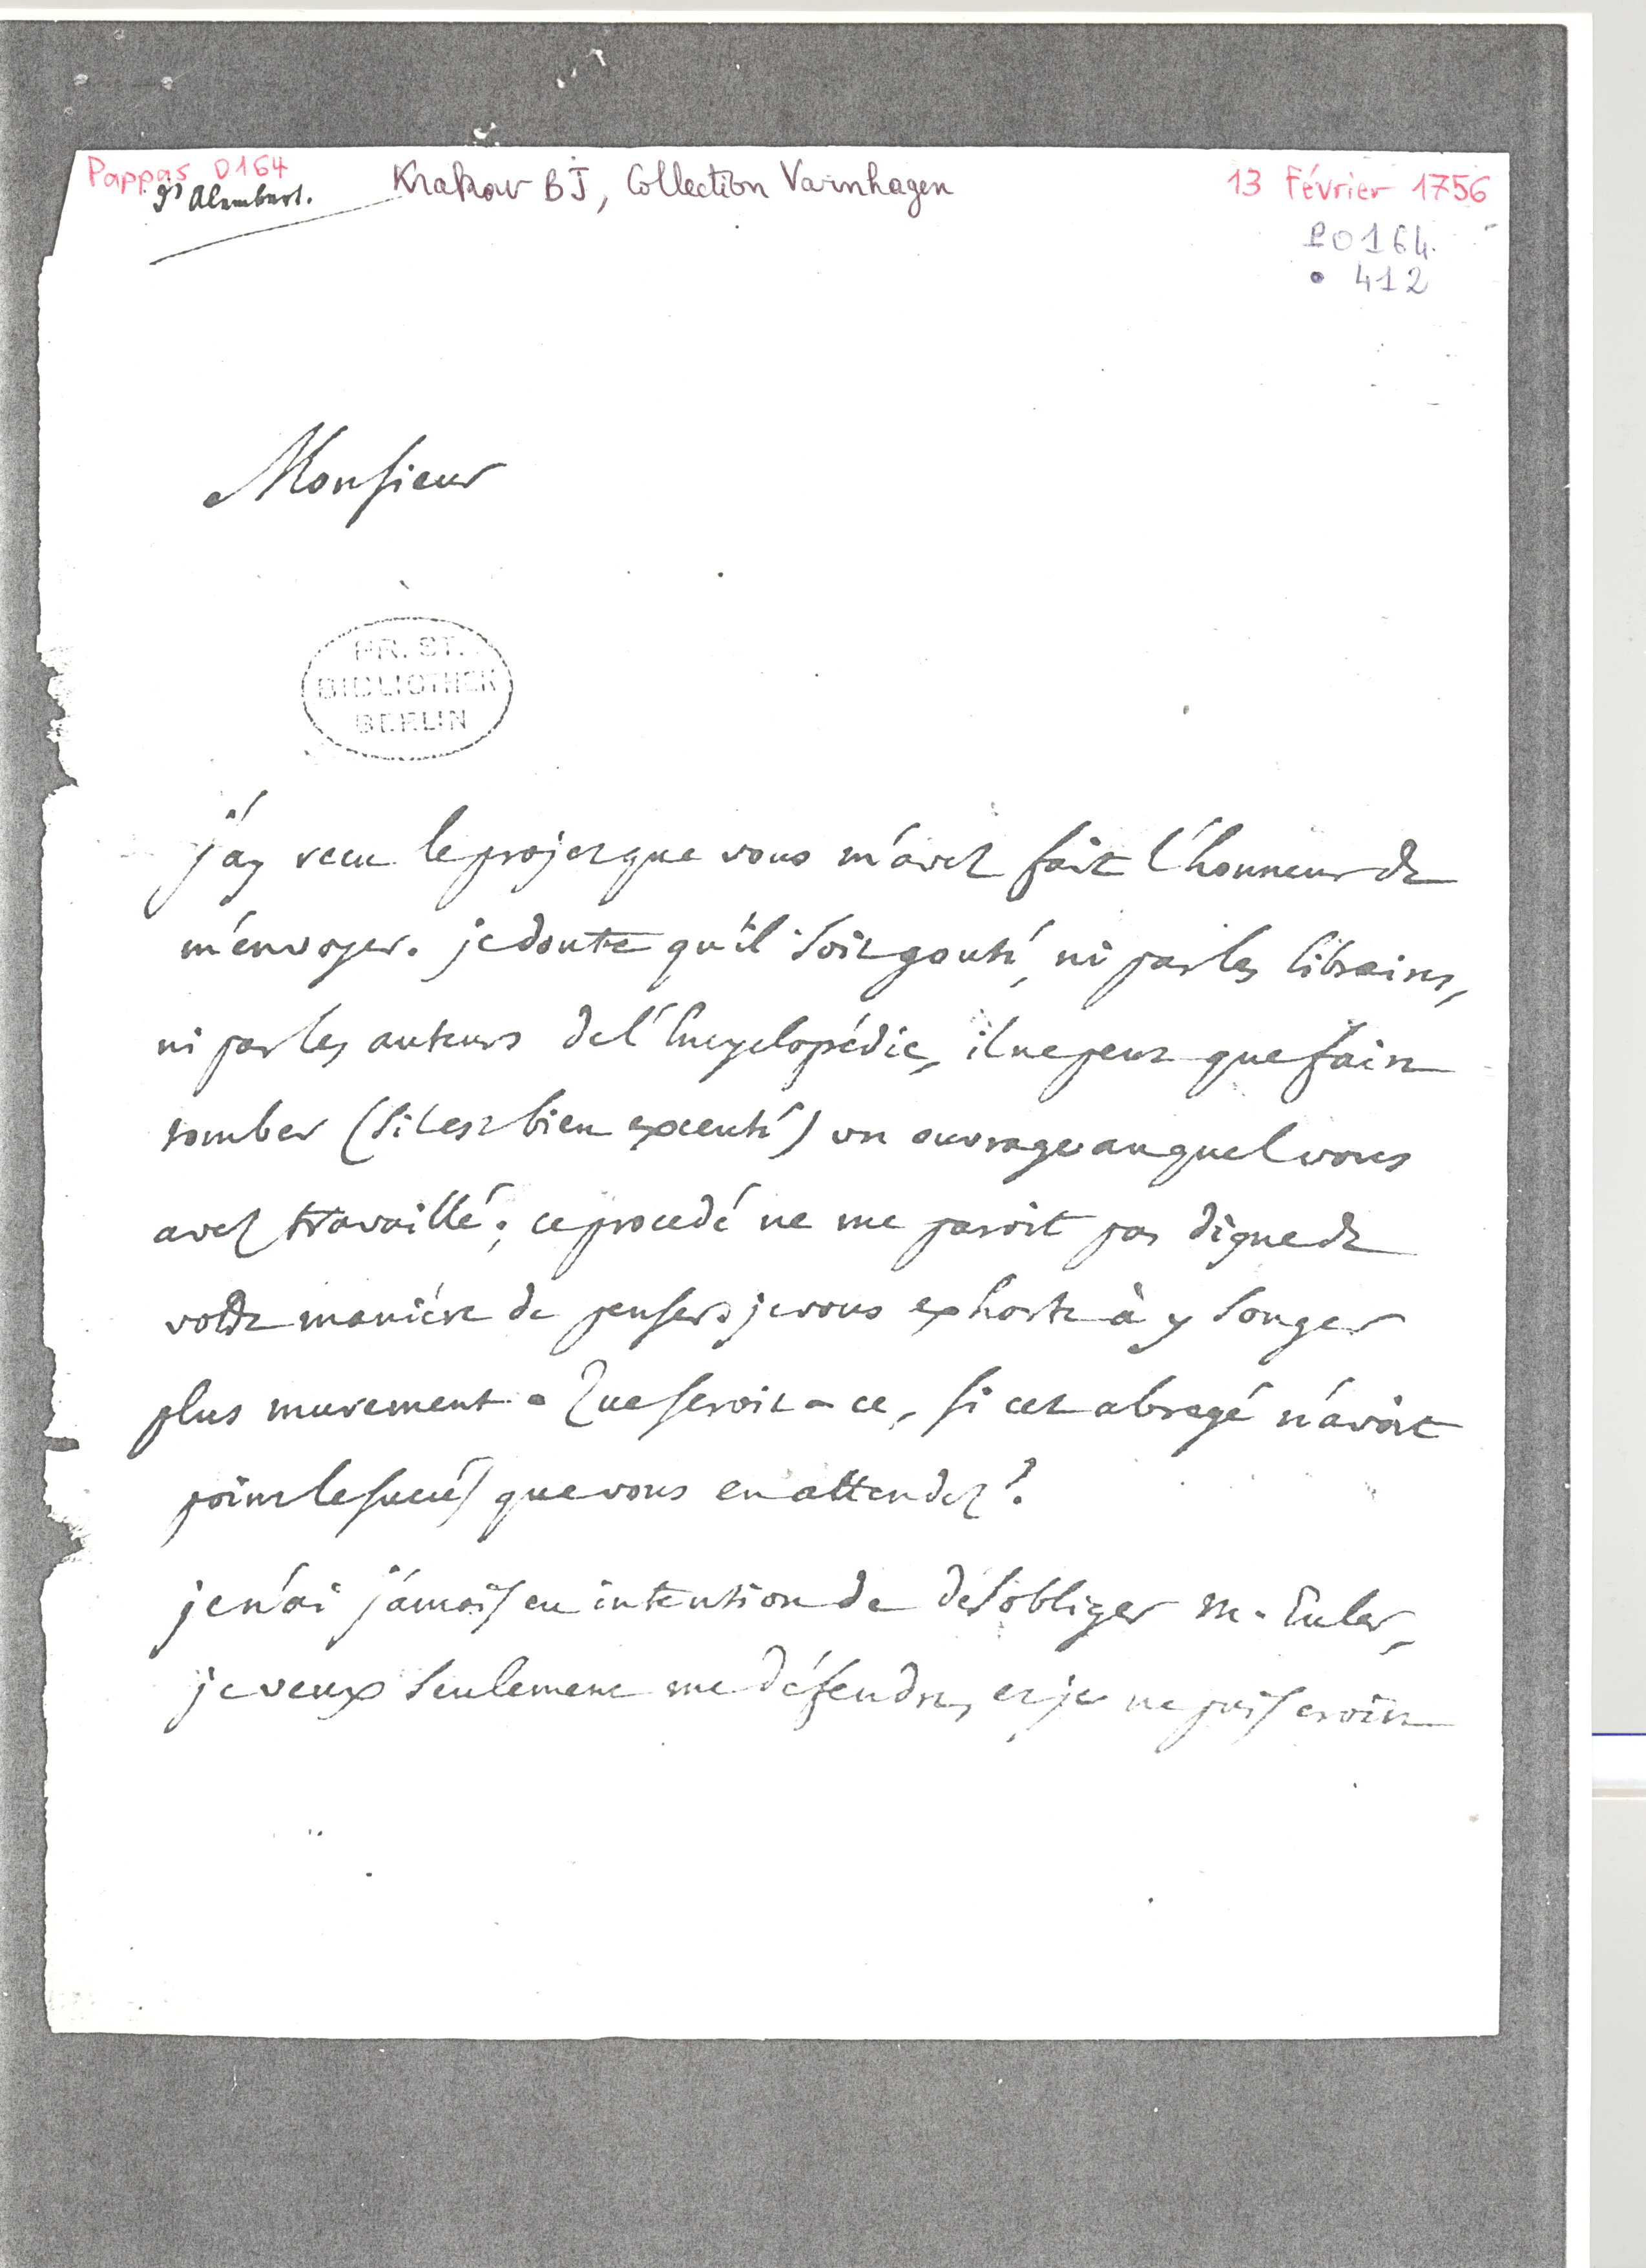 Pappas 0164
D'Alembert.
Krakow BJ, Collection Varnhagen
13 Février 1756
P0164.
• 412
Monsieur
PR. ST.
BIBLIOTHEK
BERLIN
j'ay recu le projet que vous m'avez fait l'honneur de
m'envoyer. je doute qu'il soit gouté, ni par les libraires,
ni par les auteurs de l'Encyclopédie, il ne peut que faire
tomber (s'il est bien executé) un ouvrage auquel vous
avez travaillé; ce procedé ne me paroit pas digne de
votre maniére de penser; je vous exhorte à y songer
plus murement. Que seroit-ce, si cet abregé n'avoit
point le succès que vous en attendez?
je n'ai jamais eu intention de désobliger M. Euler,
je veux seulement me défendre, et je ne puis croire